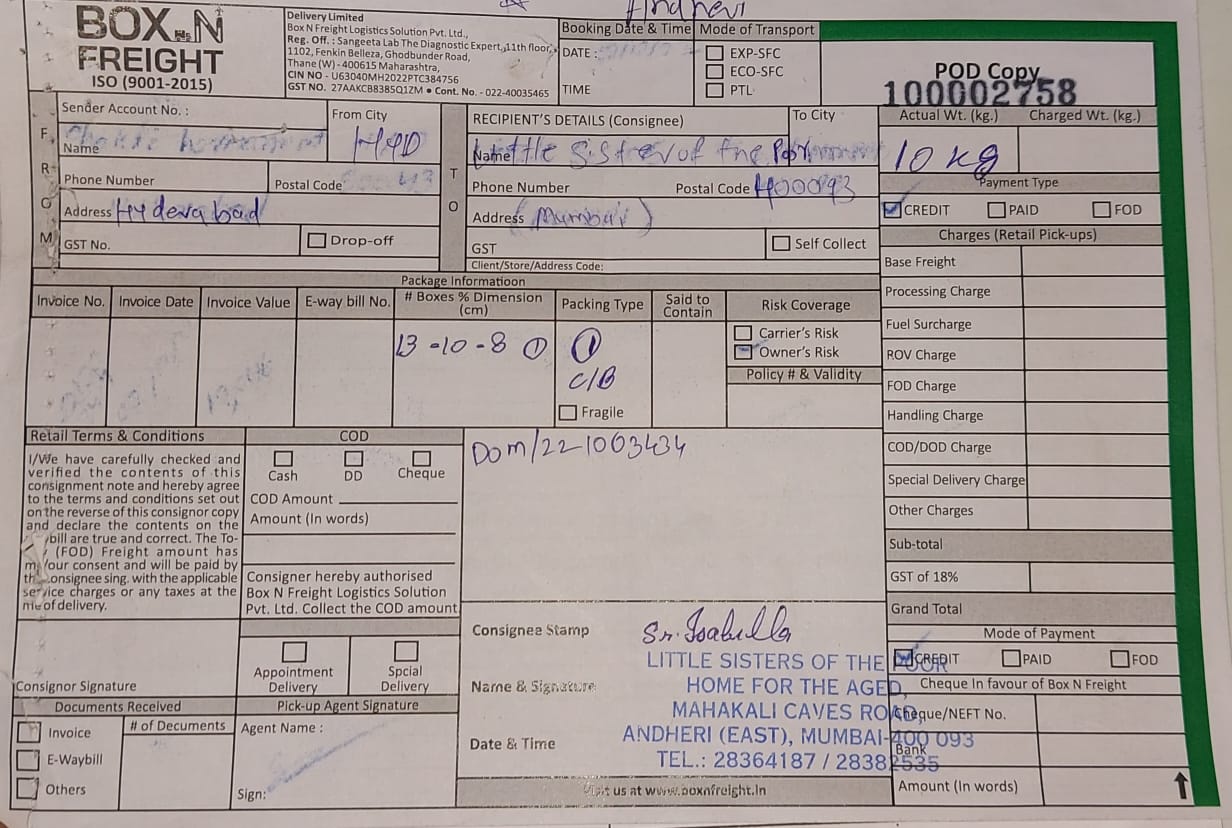 Andheri
BOX N
FREIGHT
ISO (9001-2015)
Delivery Limited
Box N Freight Logistics Solution Pvt. Ltd.,
Reg. Off. : Sangeeta Lab The Diagnostic Expert, 11th floor,
1102, Fenkin Belleza, Ghodbunder Road,
Thane (W) - 400615 Maharashtra,
CIN NO - U63040MH2022PTC384756
GST NO. 27AAKCB8385Q1ZM • Cont. No. - 022-40035465
Booking Date & Time
DATE :
TIME
Mode of Transport
EXP-SFC
ECO-SFC
PTL
POD Copy
100002758
FROM
Sender Account No. :
Name
From City
HYD
Phone Number
Postal Code
Address Hyderabad
GST No.
Drop-off
TO
RECIPIENT'S DETAILS (Consignee)
To City
Name Little Sistrev of the
Phone Number
Postal Code 400093
Address (Mumbai)
GST
Self Collect
Client/Store/Address Code:
Actual Wt. (kg.)
Charged Wt. (kg.)
10 kg
Payment Type
CREDIT
PAID
FOD
Charges (Retail Pick-ups)
Base Freight
Processing Charge
Fuel Surcharge
ROV Charge
FOD Charge
Handling Charge
COD/DOD Charge
Special Delivery Charge
Other Charges
Sub-total
GST of 18%
Grand Total
Package Informatioon
Invoice No.
Invoice Date
Invoice Value
E-way bill No.
# Boxes % Dimension
(cm)
Packing Type
Said to
Contain
Risk Coverage
13 -10 -8 1
1
C/B
Fragile
Carrier's Risk
Owner's Risk
Policy # & Validity
Retail Terms & Conditions
I/We have carefully checked and
verified the contents of this
consignment note and hereby agree
to the terms and conditions set out
on the reverse of this consignor copy
and declare the contents on the
bill are true and correct. The To-
(FOD) Freight amount has
our consent and will be paid by
consignee sing. with the applicable
service charges or any taxes at the
of delivery.
COD
Cash
DD
Cheque
COD Amount
Amount (In words)
Consigner hereby authorised
Box N Freight Logistics Solution
Pvt. Ltd. Collect the COD amount
Dom/22-1003434
Appointment
Delivery
Spcial
Delivery
Consignor Signature
Documents Received
Invoice
E-Waybill
Others
# of Decuments
Pick-up Agent Signature
Agent Name :
Sign:
Consignee Stamp
Name & Signature
Date & Time
Sr. Isabella
LITTLE SISTERS OF THE POOR
HOME FOR THE AGED,
MAHAKALI CAVES ROAD,
ANDHERI (EAST), MUMBAI-400 093
TEL.: 28364187 / 28382535
Visit us at www.boxnfreight.In
Mode of Payment
CREDIT
PAID
FOD
Cheque In favour of Box N Freight
Cheque/NEFT No.
Bank
Amount (In words)